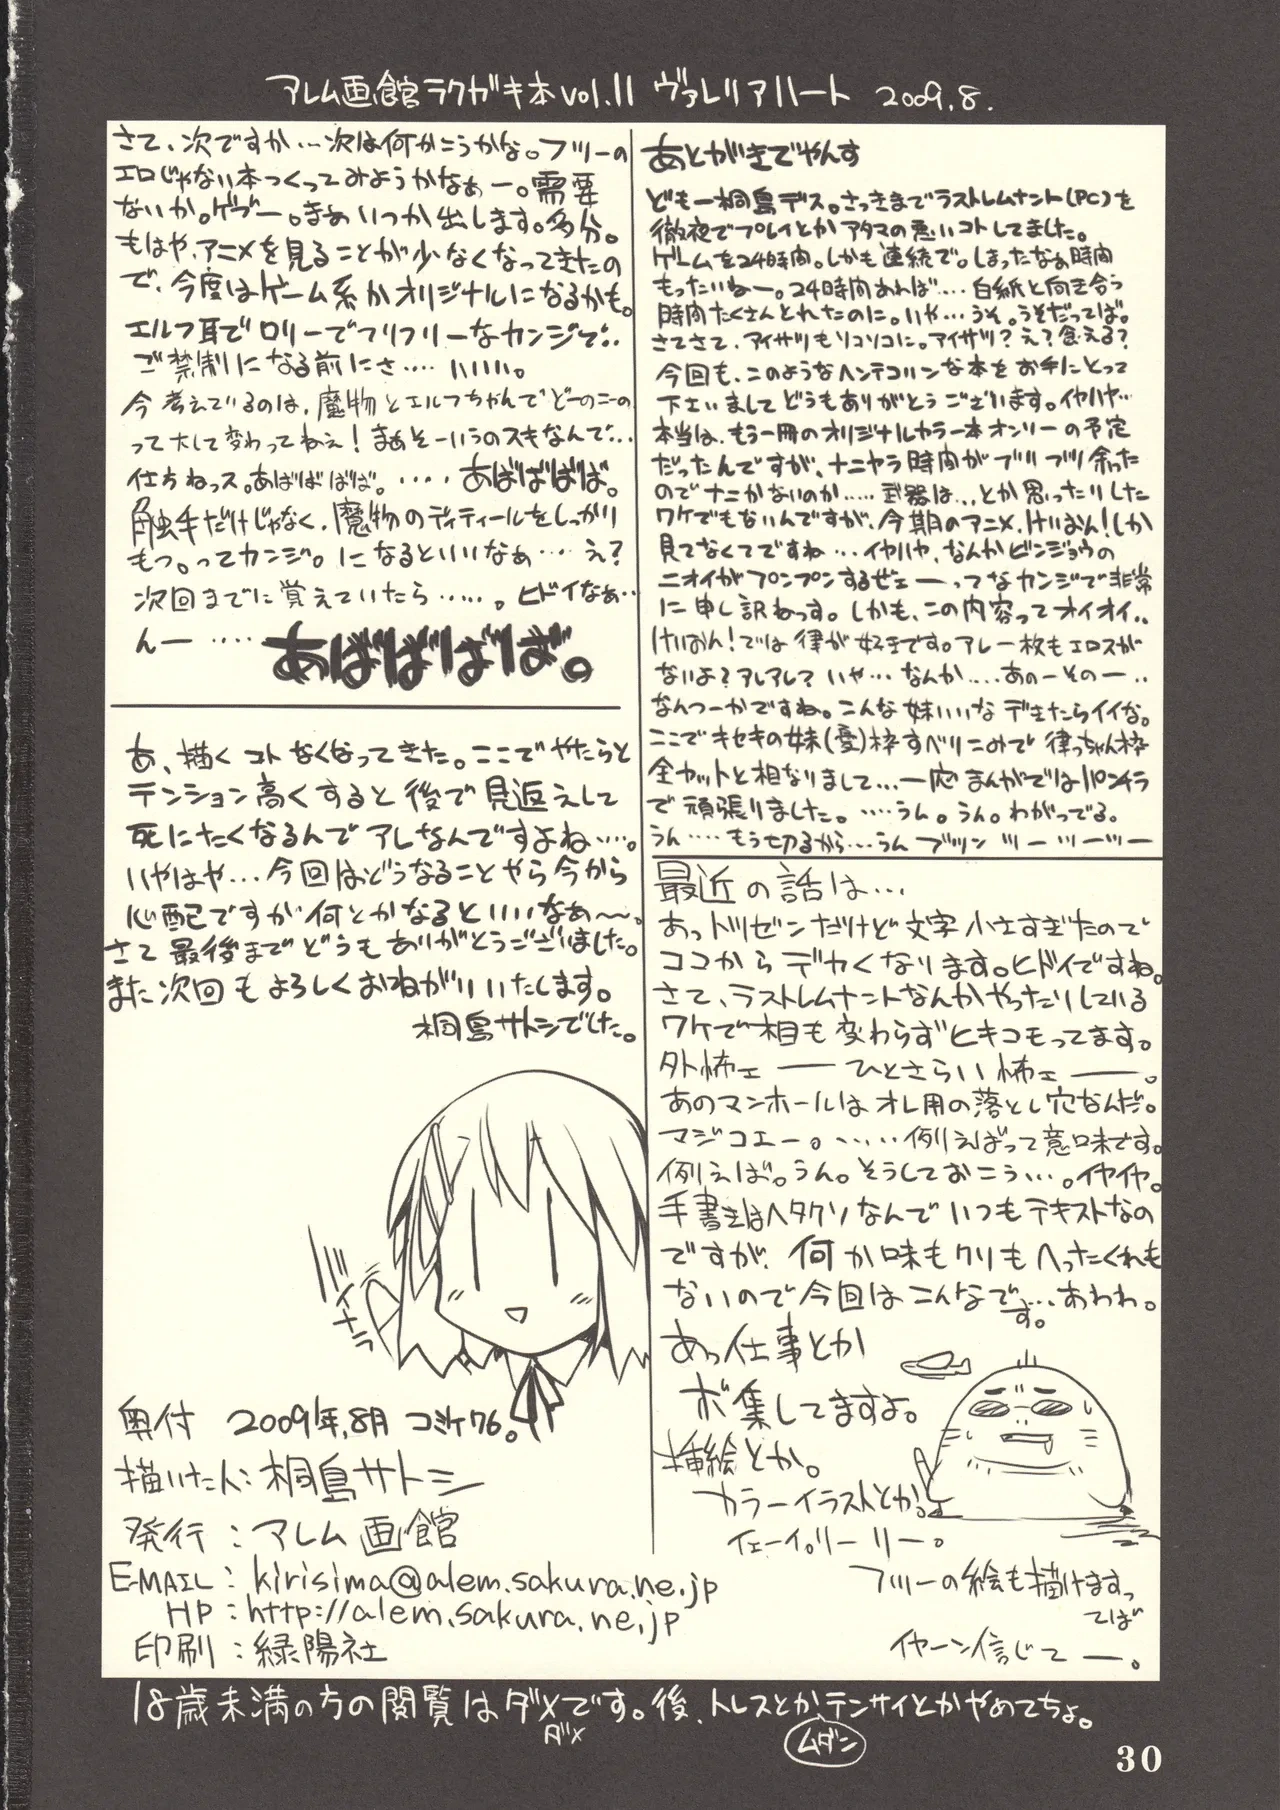 アレム画館ラクガキ本vol.11 ヴァレリアハート 2009.8.
あとがきでやんす
どもー桐島デス。さっきまでラストレムナント(PC)を
徹夜でプレイとかアタマの悪いコトしてました。
ゲームを24時間。しかも連続で。しまったなぁ時間
もったいねー。24時間あれば…. 白紙と向き合う
時間たくさんとれたのに。いや…うそ。うそだってば。
さてさて、アイサツもソコソコに。アイサツ?え?食える?
今回も、このようなヘンテコリンな本をお手にとって
下さいましてどうもありがとうございます。イヤハヤ…
本当は、もう一冊のオリジナルカラー本オンリーの予定
だったんですが、ナニヤラ時間がブリブリ余った
のでナニかないのか…..武器は…とか思ったりした
ワケでもないんですが、今期のアニメ、けいおん!しか
見てなくてですね…イヤハヤ、なんかビンジョウの
ニオイがプンプンするぜェーってなカンジで非常
に申し訳ねっす。しかも、この内容ってオイオイ..
けいおん!では律が好きです。アレ一枚もエロスが
ないよ?アレアレ?いや…なんか….あのーそのー..
なんつーかですね。こんな妹いいなデキたらイイな。
ここでキセキの妹(愛)枠すべりこみで律っちゃん枠
全カットと相なりまして…一応まんがではパンチラ
で頑張りました。….うん。うん。わかってる。
うん….もう切るから…うん ブツン ツーツーツー
最近の話は…
あっトツゼンだけど文字小さすぎたので
ココからデカくなります。ヒドイですね。
さて、ラストレムナントなんかやったりしている
ワケで相も変わらずヒキコモってます。
外怖ェ ー ひとさらい怖ェ ー。
あのマンホールはオレ用の落とし穴なんだ。
マジコエー。.….例えばって意味です。
例えば。うん。そうしておこう…。イヤイヤ。
手書きはヘタクソなんでいつもテキストなの
ですが、何か味もクリもへったくれも
ないので今回はこんなです。…あわわ。
あっ仕事とか
ボ集してますよ。
挿絵とか。
カラーイラストとかっ
イェーイ。リーリー。
フツーの絵も描けますっ
てば
イヤーン信じてー。
さて、次ですか…次は何かこうかな。フツーの
エロじゃない本つくってみようかなぁー。需要
ないか。ゲプー。まぁいつか出します。多分。
もはや、アニメを見ることが少なくなってきたの
で、今度はゲーム系かオリジナルになるかも。
エルフ耳でロリーでフリフリーなカンジで..
ご禁制になる前にさ….いいい。
今考えているのは、魔物とエルフちゃんでどーのこーの
って大して変わってねぇ!まぁそーいうのスキなんで…
仕方ねっス。あばばばば。…..あばばばば。
触手だけじゃなく、魔物のディティールをしっかり
もつ。ってカンジ。になるといいなぁ…. え?
次回まで覚えていたら…..。ヒドイなぁ..
んー…..あばばばば。
あ、描くコトなくなってきた。ここでやたらと
テンション高くすると後で見返えして
死にたくなるんでアレなんですよね….。
いやはや…今回はどうなることやら今から
心配ですが何とかなるといいなぁ〜。
さて最後までどうもありがとうございました。
また次回もよろしくおねがいいたします。
桐島サトシでした。
奥付 2009年,8月 コミケ76。
描いた人:桐島サトシ
発行:アレム画館
E-MAIL:kirisima@alem.sakura.ne.jp
HP:http://alem.sakura.ne.jp
印刷:緑陽社
18歳未満の方の閲覧はダメです。後、トレスとか、テンサイとかやめてちょ。
ダメ
ムダン
30